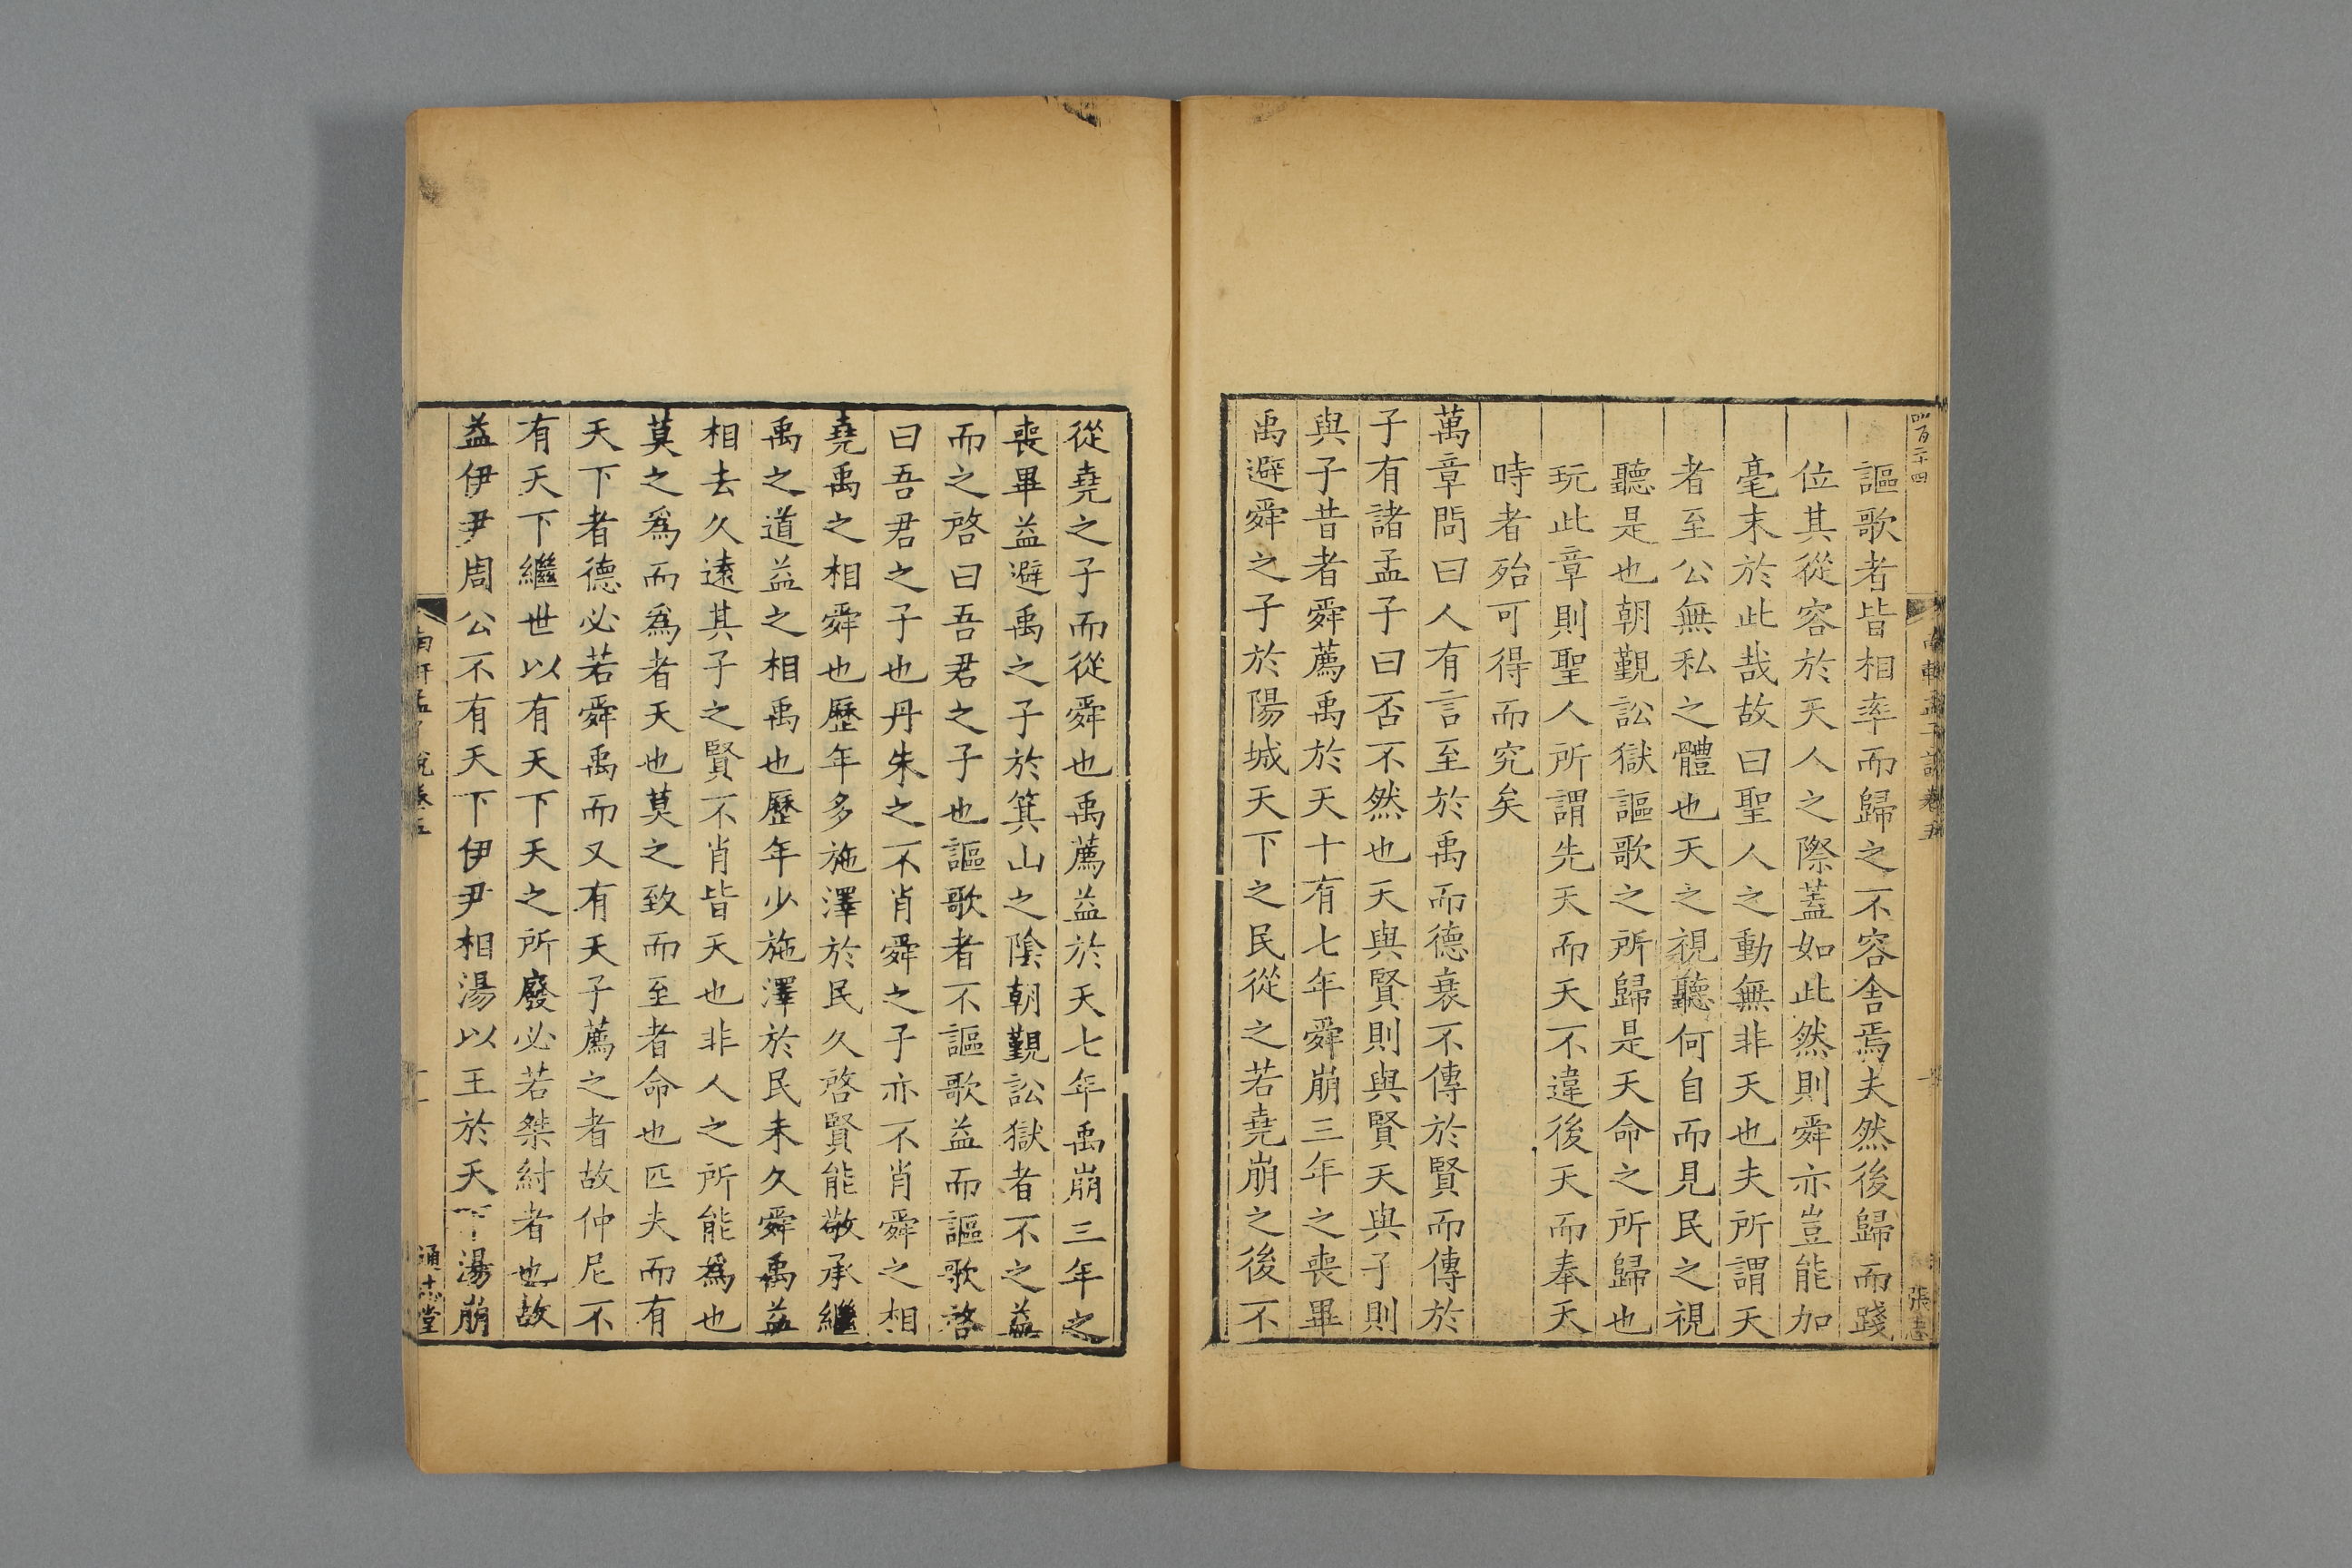 四百二十四
謳歌者皆相率而歸之不容舍焉夫然後歸而踐
位其從容於天人之際蓋如此然則舜亦豈能加
毫末於此哉故曰聖人之動無非天也夫所謂天
者至公無私之體也天之視聽何自而見民之視
聽是也朝覲訟獄謳歌之所歸是天命之所歸也
玩此章則聖人所謂先天而天不違後天而奉天
時者殆可得而究矣
萬章問曰人有言至於禹而德衰不傳於賢而傳於
子有諸孟子曰否不然也天與賢則與賢天與子則
與子昔者舜薦禹於天十有七年舜崩三年之喪畢
禹避舜之子於陽城天下之民從之若堯崩之後不
從堯之子而從舜也禹薦益於天七年禹崩三年之
喪畢益避禹之子於箕山之陰朝覲訟獄者不之益
而之啓曰吾君之子也謳歌者不謳歌益而謳歌啓
曰吾君之子也丹朱之不肖舜之子亦不肖舜之相
堯禹之相舜也歷年多施澤於民久啓賢能敬承繼
禹之道益之相禹也歷年少施澤於民未久舜禹益
相去久遠其子之賢不肖皆天也非人之所能爲也
莫之爲而爲者天也莫之致而至者命也匹夫而有
天下者德必若舜禹而又有天子薦之者故仲尼不
有天下繼世以有天下天之所廢必若桀紂者也故
益伊尹周公不有天下伊尹相湯以王於天下湯崩
南軒孟子說卷五
通志堂